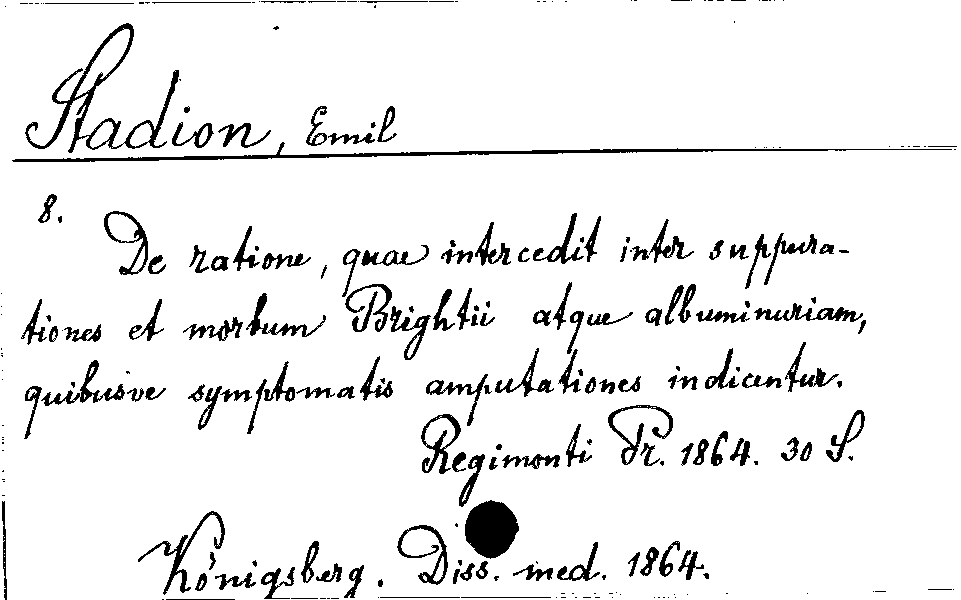 Stadion, Emil
8.
De ratione, quae intercedit inter suppura-
tiones et morbum Brightii atque albuminuriam,
quibusve symptomatis amputationes indicentur.
Regimonti Pr. 1864. 30 S.
Königsberg. Diss. med. 1864.